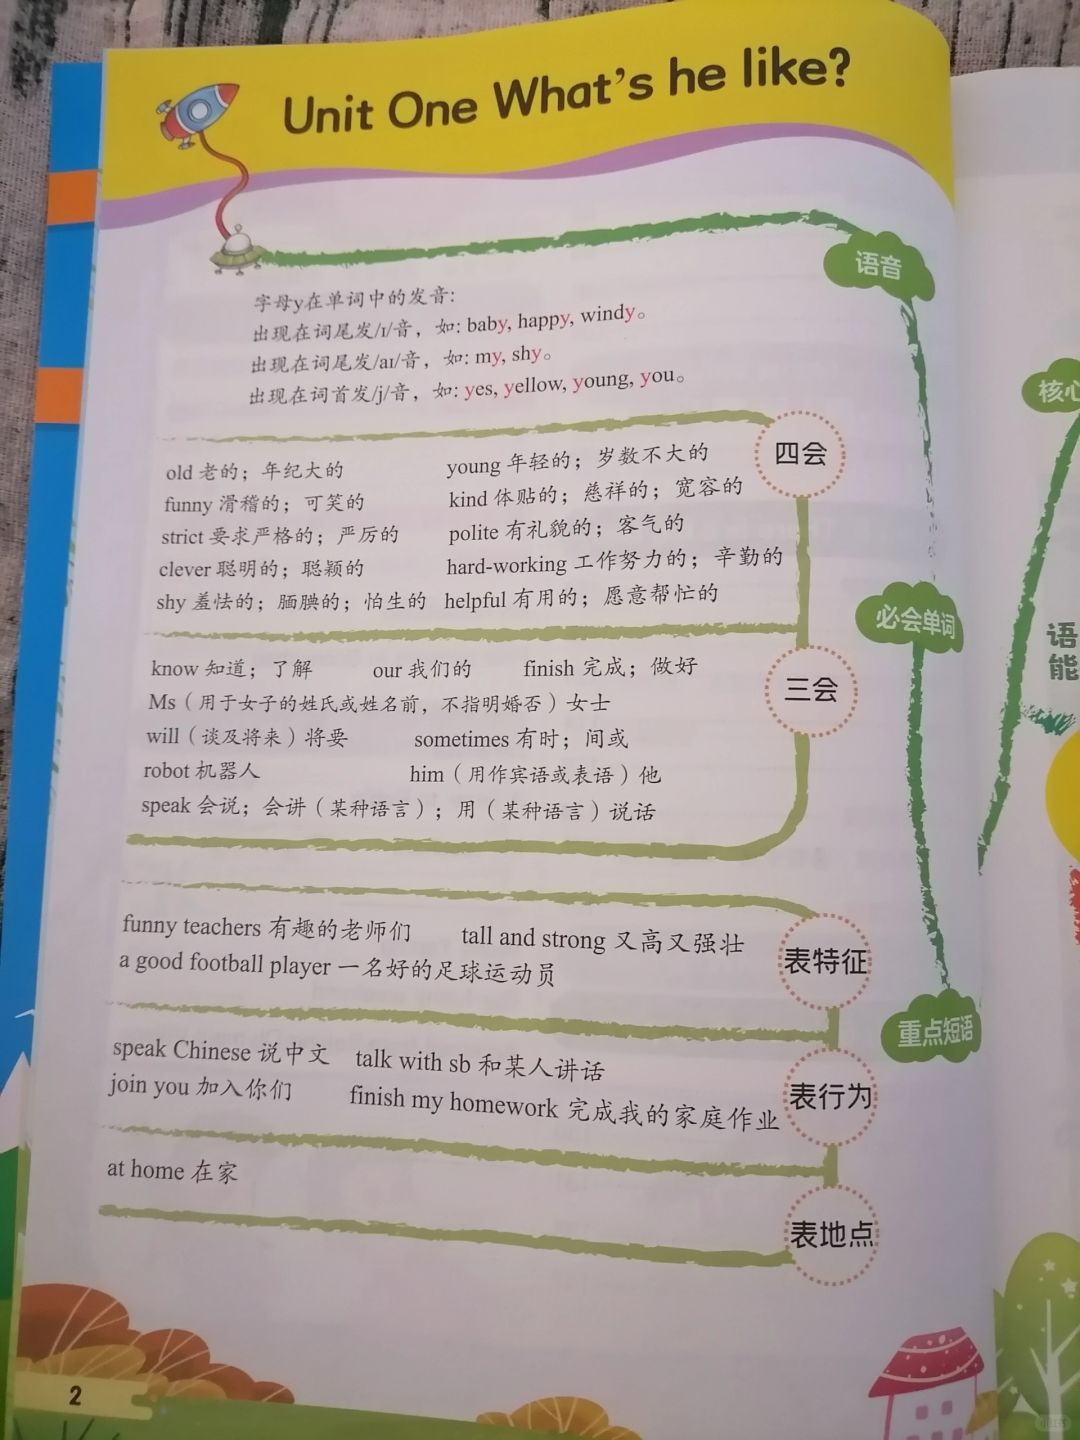 Unit One What's he like?
语音
字母y在单词中的发音:
出现在词尾发/ɪ/音，如: baby, happy, windy。
出现在词尾发/aɪ/音，如: my, shy。
出现在词首发/j/音，如: yes, yellow, young, you。
必会单词
四会
old 老的；年纪大的 young 年轻的；岁数不大的
funny 滑稽的；可笑的 kind 体贴的；慈祥的；宽容的
strict 要求严格的；严厉的 polite 有礼貌的；客气的
clever 聪明的；聪颖的 hard-working 工作努力的；辛勤的
shy 羞怯的；腼腆的；怕生的 helpful 有用的；愿意帮忙的
三会
know 知道；了解 our 我们的 finish 完成；做好
Ms（用于女子的姓氏或姓名前，不指明婚否）女士
will（谈及将来）将要 sometimes 有时；间或
robot 机器人 him（用作宾语或表语）他
speak 会说；会讲（某种语言）；用（某种语言）说话
重点短语
表特征
funny teachers 有趣的老师们 tall and strong 又高又强壮
a good football player 一名好的足球运动员
表行为
speak Chinese 说中文 talk with sb 和某人讲话
join you 加入你们 finish my homework 完成我的家庭作业
表地点
at home 在家
2
核心
语
能